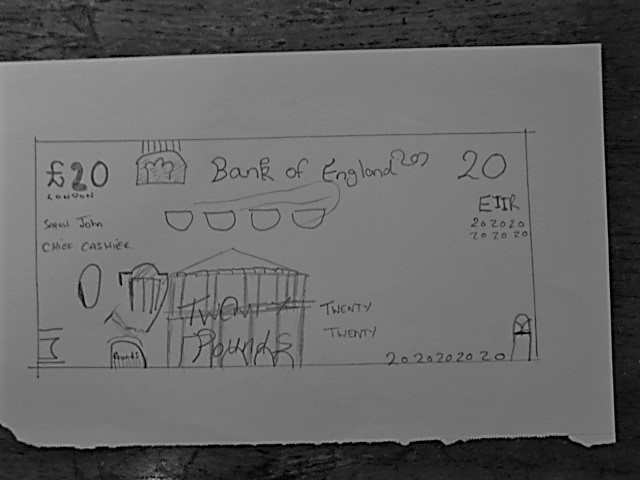 £20
LONDON
Bank of England
20
EIIR
20 20 20
20 20 20
Sarah John
CHIEF CASHIER.
TWENTY
Pounds
TWENTY
TWENTY
Pounds
20 20 20 20 20